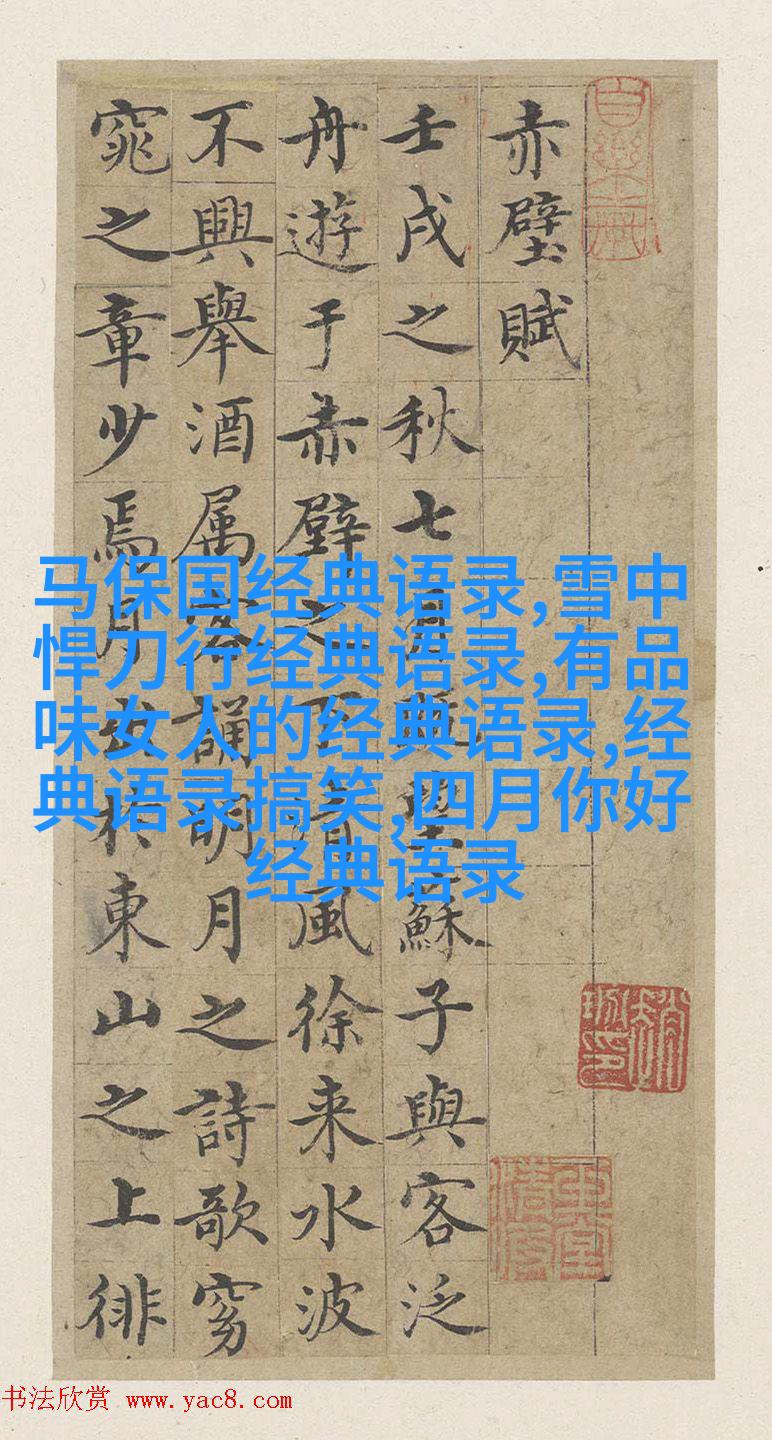 赤壁賦
壬戌之秋七月既望蘇子與客泛
舟遊于赤壁之下清風徐来水波
不興舉酒属客誦明月之詩歌窈
窕之章少焉月出於東山之上徘
马保国经典语录,雪中
悍刀行经典语录,有品
味女人的经典语录,经
典语录搞笑,四月你好
经典语录
书法欣赏 www.yac8.com